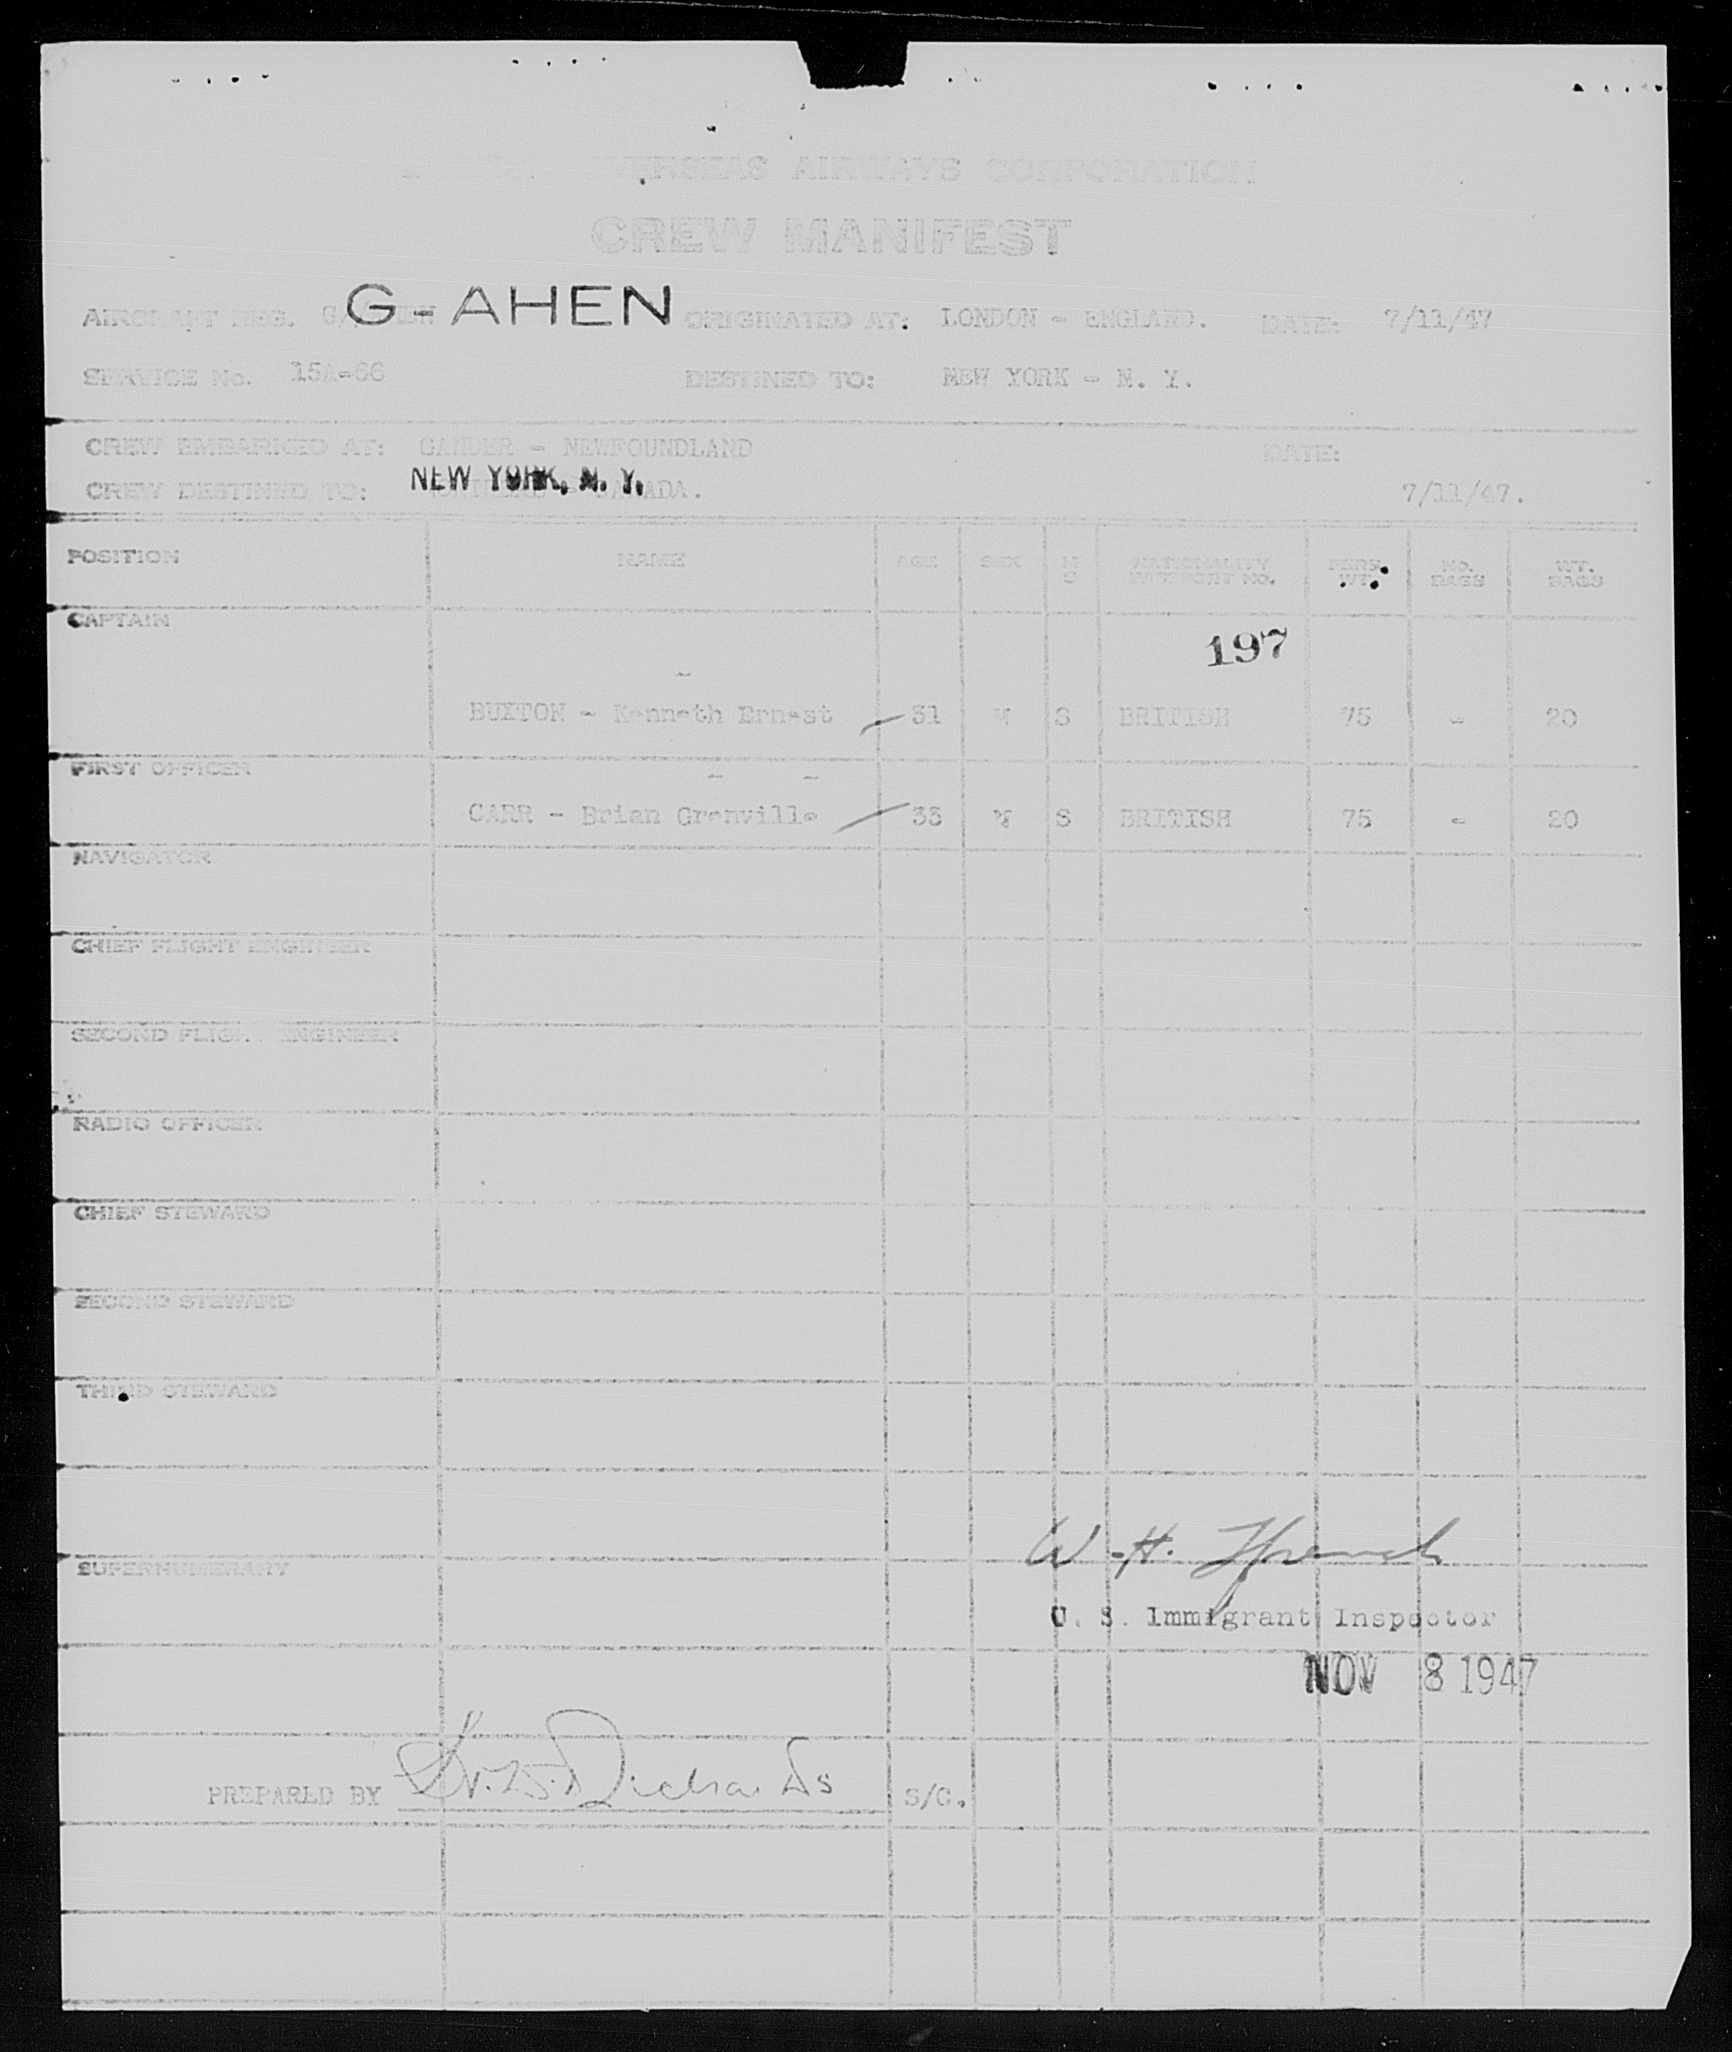 OVERSEAS AIRWAYS CORPORATION
CREW MANIFEST
AIRCRAFT REG. G-AHEN ORIGINATED AT: LONDON - ENGLAND. DATE: 7/11/47
SERVICE No. 15A-66 DESTINED TO: NEW YORK - N. Y.
CREW EMBARKED AT: GANDER - NEWFOUNDLAND DATE:
CREW DESTINED TO: NEW YORK, N. Y. CANADA. 7/11/47.
POSITION NAME AGE SEX M S NATIONALITY PASSPORT NO. PERS. WT. NO. BAGS WT. BAGS
CAPTAIN
197
BUXTON - Kenneth Ernest 31 M S BRITISH 75 - 20
FIRST OFFICER
CARR - Brian Grenville 33 M S BRITISH 75 - 20
NAVIGATOR
CHIEF FLIGHT ENGINEER
SECOND FLIGHT ENGINEER
RADIO OFFICER
CHIEF STEWARD
SECOND STEWARD
THIRD STEWARD
W. H.
SUPERNUMERARY
U. S. Immigrant Inspector
NOV 8 1947
PREPARED BY Richards S/C.